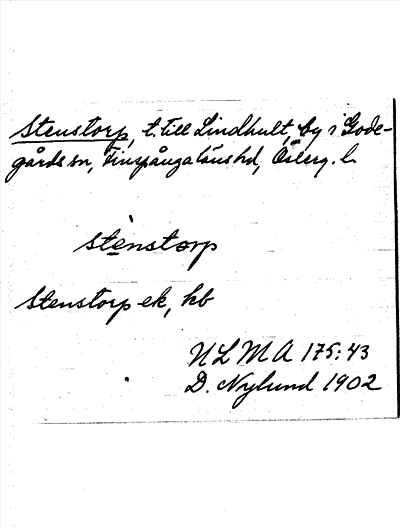 Stenstorp, t. till Lindhult, by i Gode-
gårds sn, Finspånga läns hd, Österg. l.
stènstorp
Stenstorp ek, kb
NLMA 175:43
D. Nylund 1902